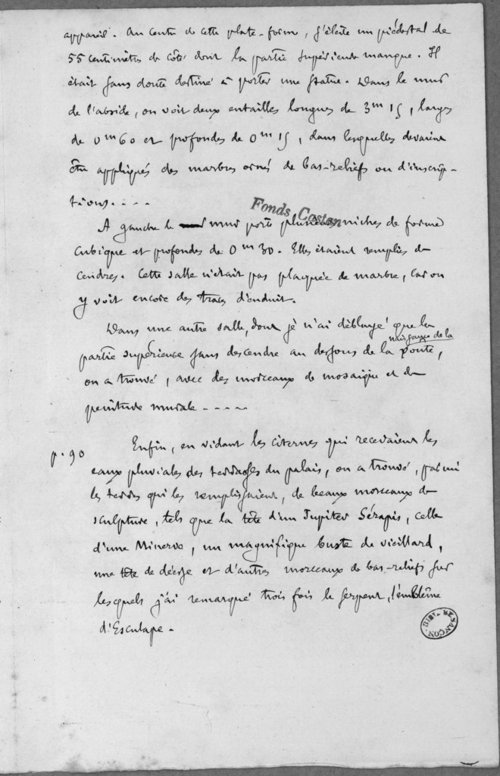 appareil. Au centre de cette plate-forme, s'élève un piédestal de
55 centimètres de côté dont la partie supérieure manque. Il
était sans doute destiné à porter une statue. Dans le mur
de l'abside, on voit deux entailles longues de 3m 15, larges
de 0m 60 et profondes de 0m 15, dans lesquelles devaient
être appliqués des marbres ornés de bas-reliefs ou d'inscrip-
tions. . . .
Fonds Castan
A gauche le mur porte plusieurs niches de forme
cubique et profondes de 0m 30. Elles étaient remplies de
cendres. Cette salle n'était pas plaquée de marbre, car on
y voit encore des traces d'enduit.
Dans une autre salle, dont je n'ai déblayé que la
partie supérieure sans descendre au dessous de la naissance de la voûte,
on a trouvé, avec des morceaux de mosaïque et de
peinture murale - - - - -
p. 90
Enfin, en vidant les citernes qui recevaient les
eaux pluviales des terrasses du palais, on a trouvé, parmi
les terres qui les remplissaient, de beaux morceaux de
sculpture, tels que la tête d'un Jupiter Sérapis, celle
d'une Minerve, un magnifique buste de vieillard,
une tête de déesse et d'autres morceaux de bas-reliefs sur
lesquels j'ai remarqué trois fois le serpent, l'emblême
d'Esculape.
BIBL. BESANÇON